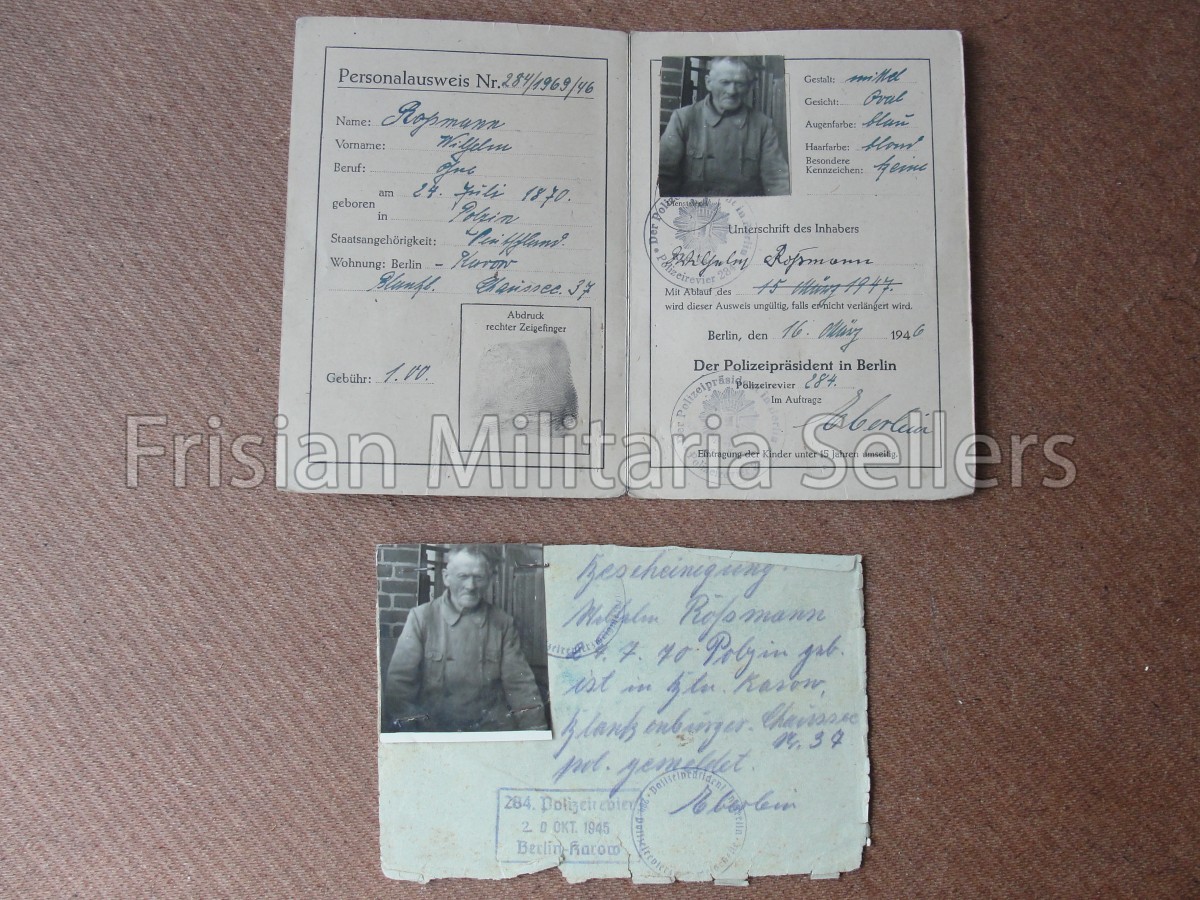 Personalausweis Nr. 284/1969/46
Name: Roßmann
Vorname: Wilhelm
Beruf: Ohne
geboren am 24. Juli 1870.
in Polzin
Staatsangehörigkeit: Deutschland.
Wohnung: Berlin - Karow
Chaussee. 37
Abdruck
rechter Zeigefinger
Gebühr: 1.00.
Gestalt: mittel
Gesicht: Oval
Augenfarbe: blau
Haarfarbe: blond
Besondere
Kennzeichen: keine
Der Polizeipräsident in Berlin
Polizeirevier 284
Unterschrift des Inhabers
Wilhelm Roßmann
Mit Ablauf des 15 März 1947.
wird dieser Ausweis ungültig, falls er nicht verlängert wird.
Berlin, den 16. März 1946
Der Polizeipräsident in Berlin
Polizeirevier 284.
Im Auftrage
Eberlein
Der Polizeipräsident in Berlin
Eintragung der Kinder unter 15 Jahren umseitig.
Frisian Militaria Sellers
Bescheinigung.
Wilhelm Roßmann
24. 7. 70 Polzin geb.
ist in Bln. Karow,
Blankenburger. Chaussee
Nr. 37
pol. gemeldet.
Eberlein
284. Polizeirevier
20 OKT. 1945
Berlin-Karow
Polizeipräsident in Berlin